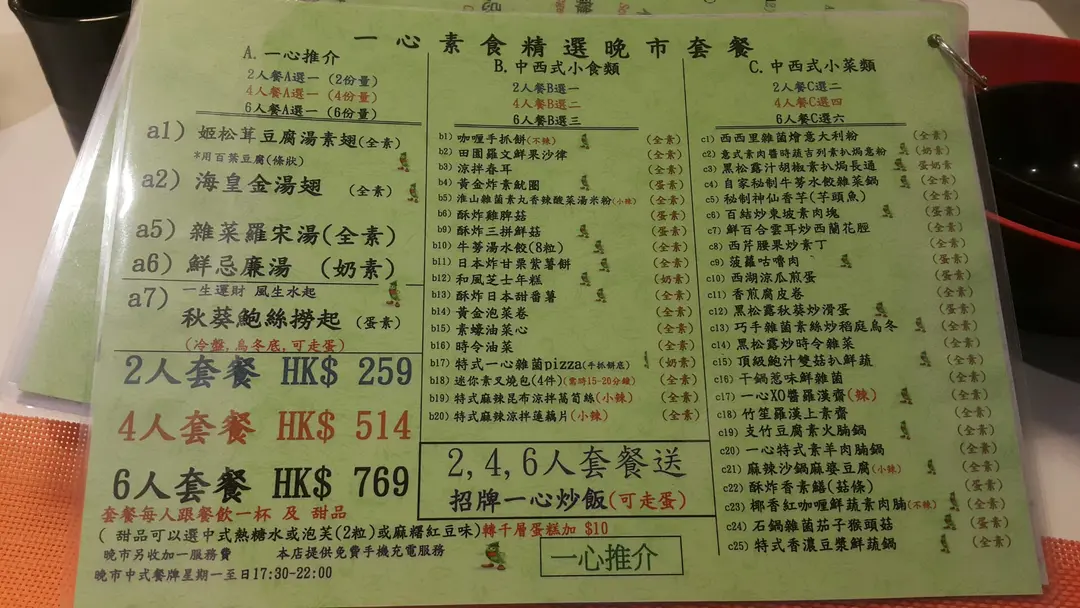 一心素食精選晚市套餐
A. 一心推介
2人餐A選一 (2份量)
4人餐A選一 (4份量)
6人餐A選一 (6份量)
a1) 姬松茸豆腐湯素翅(全素)
*用百葉豆腐(條狀)
a2) 海皇金湯翅 (全素)
a5) 雜菜羅宋湯(全素)
a6) 鮮忌廉湯 (奶素)
a7) 一生運財 風生水起
秋葵鮑絲撈起 (蛋素)
(冷盤,烏冬底,可走蛋)
2人套餐 HK$ 259
4人套餐 HK$ 514
6人套餐 HK$ 769
B. 中西式小食類
2人餐B選一
4人餐B選二
6人餐B選三
b1) 咖喱手抓餅(不辣) (全素)
b2) 田園羅文鮮果沙律 (全素)
b3) 涼拌春耳 (全素)
b4) 黃金炸素魷圈 (蛋素)
b5) 淮山雜菌素丸香辣酸菜湯米粉(小辣) (全素)
b6) 酥炸雞脾菇 (蛋素)
b9) 酥炸三拼鮮菇 (蛋素)
b10) 牛蒡湯水餃(8粒) (全素)
b11) 日本炸甘栗紫薯餅 (全素)
b12) 和風芝士年糕 (奶素)
b13) 酥炸日本甜番薯 (全素)
b14) 黃金泡菜卷 (全素)
b15) 素蠔油菜心 (全素)
b16) 時令油菜 (全素)
b17) 特式一心雜菌pizza(手抓餅底) (奶素)
b18) 迷你素叉燒包(4件)(需時15-20分鐘) (全素)
b19) 特式麻辣昆布涼拌萵筍絲(小辣) (全素)
b20) 特式麻辣涼拌蓮藕片(小辣) (全素)
C. 中西式小菜類
2人餐C選二
4人餐C選四
6人餐C選六
c1) 西西里雜菌燴意大利粉 (全素)
c2) 意式素肉醬時蔬吉列素扒焗意粉 (奶素)
c3) 黑松露汁胡椒素扒焗長通 (蛋奶素)
c4) 自家秘制牛蒡水餃雜菜鍋 (全素)
c5) 秘制神仙香芋(芋頭魚) (全素)
c6) 百結炒東坡素肉塊 (蛋素)
c7) 鮮百合雲耳炒西蘭花脭 (全素)
c8) 西芹腰果炒素丁 (全素)
c9) 菠蘿咕嚕肉 (蛋素)
c10) 西湖涼瓜煎蛋 (蛋素)
c11) 香煎腐皮卷 (全素)
c12) 黑松露秋葵炒滑蛋 (蛋素)
c13) 巧手雜菌素絲炒稻庭烏冬 (全素)
c14) 黑松露炒時令雜菜 (全素)
c15) 頂級鮑汁雙菇扒鮮蔬 (全素)
c16) 干鍋惹味鮮雜菌 (全素)
c17) 一心XO醬羅漢齋(辣) (全素)
c18) 竹笙羅漢上素齋 (全素)
c19) 支竹豆腐素火腩鍋 (全素)
c20) 一心特式素羊肉腩鍋 (全素)
c21) 麻辣沙鍋麻婆豆腐(小辣) (全素)
c22) 酥炸香素鱔(菇條) (蛋素)
c23) 椰香紅咖喱鮮蔬素肉腩(不辣) (全素)
c24) 石鍋雜菌茄子猴頭菇 (蛋素)
c25) 特式香濃豆漿鮮蔬鍋 (全素)
2,4,6人套餐送
招牌一心炒飯(可走蛋)
套餐每人跟餐飲一杯 及 甜品
( 甜品可以選中式熱糖水或泡芙(2粒)或麻糬紅豆味)轉千層蛋糕加 $10
晚市另收加一服務費 本店提供免費手機充電服務
晚市中式餐牌星期一至日17:30-22:00
一心推介